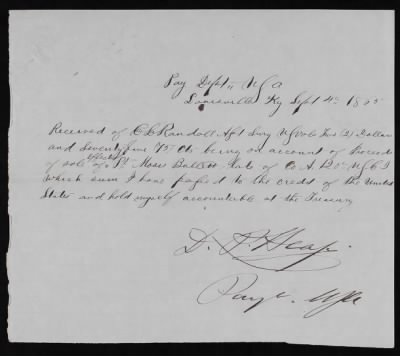 Pay Dept. U S A
Louisville Ky Sept 4th 1865
Received of C C Randall Ast Surg US Vols Two (2) Dollars
and Seventy five 75 Cts being on account of Proceeds
of sale of effects Pt Moses Late of Co A 125 U S C I
which sum I have passed to the credit of the United
States and hold myself accountable at the Treasury
D. Heap.
Paymr USA